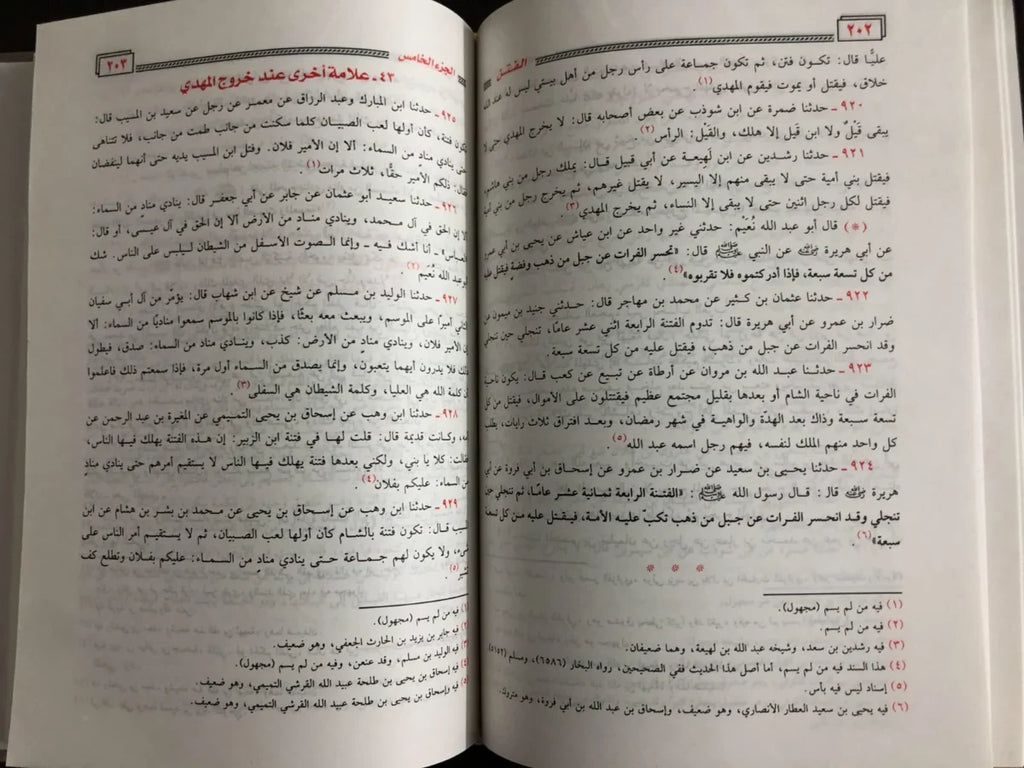 ٢٠٢
الفتن
عليًّا قال: تكون فتن، ثم تكون جماعة على رأس رجل من أهل بيتي ليس له عند الله
خلاق، فيقتل أو يموت فيقوم المهدي(١).
٩٢٠ - حدثنا ضمرة عن ابن شوذب عن بعض أصحابه قال: لا يخرج المهدي حتى لا
يبقى قَيْلٌ ولا ابن قيل إلا هلك، والقَيْل: الرأس(٢)
٩٢١ - حدثنا رشدين عن ابن لَهِيعة عن أبي قبيل قال: يملك رجل من بني هاشم،
فيقتل بني أمية حتى لا يبقى منهم إلا اليسير، لا يقتل غيرهم، ثم يخرج رجل من بني أمية
فيقتل لكل رجل اثنين حتى لا يبقى إلا النساء، ثم يخرج المهدي(٣).
(*) قال أبو عبد الله نُعَيْم: حدثني غير واحد عن ابن عياش عن يحيى بن أبي عمرو
عن أبي هريرة ﷺ عن النبي ﷺ قال: «تحسر الفرات عن جبل من ذهب وفضة فيقتل عليه
من كل تسعة سبعة، فإذا أدركتموه فلا تقربوه»(٤)
٩٢٢ - حدثنا عثمان بن كثير عن محمد بن مهاجر قال: حدثني جنيد بن ميمون عن
ضرار بن عمرو عن أبي هريرة قال: تدوم الفتنة الرابعة اثني عشر عامًا، تنجلي حين تنجلي
وقد انحسر الفرات عن جبل من ذهب، فيقتل عليه من كل تسعة سبعة.
٩٢٣ - حدثنا عبد الله بن مروان عن أرطاة عن تبيع عن كعب قال: يكون ناحية
الفرات في ناحية الشام أو بعدها بقليل مجتمع عظيم فيقتتلون على الأموال، فيقتل من كل
تسعة سبعة وذاك بعد الهدّة والواهية في شهر رمضان، وبعد افتراق ثلاث رايات، يطلب
كل واحد منهم الملك لنفسه، فيهم رجل اسمه عبد الله(٥).
٩٢٤ - حدثنا يحيى بن سعيد عن ضرار بن عمرو عن إسحاق بن أبي فروة عن أبي
هريرة قال: قال رسول الله ﷺ: «الفتنة الرابعة ثمانية عشر عامًا، ثم تنجلي حين
تنجلي وقد انحسر الفرات عن جبل من ذهب تكبّ عليه الأمة، فيقتل عليه من كل تسعة
سبعة»(٦).
* * *
(١) فيه من لم يسم (مجهول).
(٢) فيه من لم يسم.
(٣) فيه رشدين بن سعد، وشيخه عبد الله بن لهيعة، وهما ضعيفان.
(٤) هذا السند فيه من لم يسم، أما أصل هذا الحديث ففي الصحيحين، رواه البخار (٦٥٨٦)، ومسلم (٥١٥٢).
(٥) إسناد ليس فيه بأس.
(٦) فيه يحيى بن سعيد العطار الأنصاري، وهو ضعيف، وإسحاق بن عبد الله بن أبي فروة، وهو متروك.
الجزء الخامس
٢٠٣
٤٣ - علامة أخرى عند خروج المهدي
٩٢٥ - حدثنا ابن المبارك وعبد الرزاق عن معمر عن رجل عن سعيد بن المسيب قال:
تكون فتنة، كأن أولها لعب الصبيان كلما سكنت من جانب طمت من جانب، فلا تتناهى
حتى ينادي مناد من السماء: ألا إن الأمير فلان. وفتل ابن المسيب يديه حتى أنهما لينفضان
فقال: ذلكم الأمير حقًّا، ثلاث مرات(١).
٩٢٦ - حدثنا سعيد أبو عثمان عن جابر عن أبي جعفر قال: ينادي منادٍ من السماء:
ألا إن الحق في آل محمد، وينادي منادٍ من الأرض ألا إن الحق في آل عيسى، أو قال:
العباس - أنا أشك فيه - وإنما الصوت الأسفل من الشيطان ليلبس على الناس. شك
أبو عبد الله نُعيم(٢).
٩٢٧ - حدثنا الوليد بن مسلم عن شيخ عن ابن شهاب قال: يؤمّر من آل أبي سفيان
الثاني أميرًا على الموسم، ويبعث معه بعثًا، فإذا كانوا بالموسم سمعوا مناديًا من السماء: ألا
إن الأمير فلان، وينادي منادٍ من الأرض: كذب، وينادي مناد من السماء: صدق، فيطول
ذلك فلا يدرون أيهما يتبعون، وإنما يصدق من السماء أول مرة، فإذا سمعتم ذلك فاعلموا
أن كلمة الله هي العليا، وكلمة الشيطان هي السفلى(٣).
٩٢٨ - حدثنا ابن وهب عن إسحاق بن يحيى التميمي عن المغيرة بن عبد الرحمن عن
أمه، وكانت قديمة قال: قلت لها في فتنة ابن الزبير: إن هذه الفتنة يهلك فيها الناس،
فقالت: كلا يا بني، ولكني بعدها فتنة يهلك فيها الناس لا يستقيم أمرهم حتى ينادي منادٍ
من السماء: عليكم بفلان(٤).
٩٢٩ - حدثنا ابن وهب عن إسحاق بن يحيى عن محمد بن بشر بن هشام عن ابن
المسيب قال: تكون فتنة بالشام كأن أولها لعب الصبيان، ثم لا يستقيم أمر الناس على
شيء، ولا يكون لهم جماعة حتى ينادي منادٍ من السماء: عليكم بفلان وتطلع كف
تشير(٥).
(١) فيه من لم يسم (مجهول).
(٢) فيه جابر بن يزيد بن الحارث الجعفي، وهو ضعيف.
(٣) فيه الوليد بن مسلم، وقد عنعن، وفيه من لم يسم (مجهول).
(٤) فيه إسحاق بن يحيى بن طلحة عبيد الله القرشي التميمي، وهو ضعيف.
(٥) فيه وإسحاق بن يحيى بن طلحة عبيد الله القرشي التميمي، وهو ضعيف.